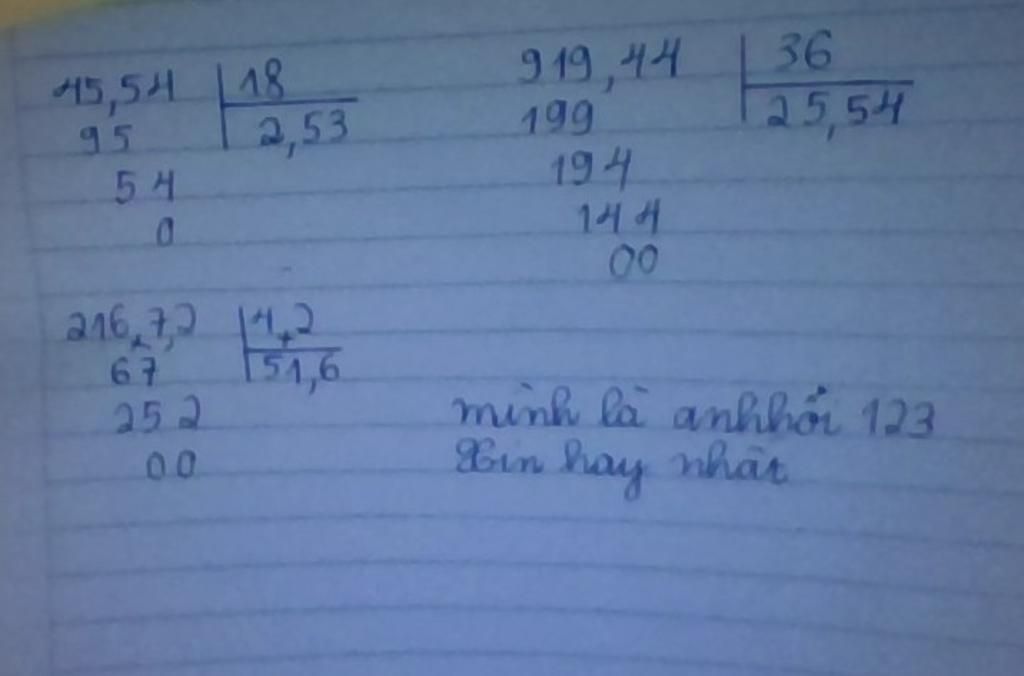 45,54 | 18
95 | 2,53
54
0
919,44 | 36
199 | 25,54
194
144
00
216,7,2 | 4,2
67 | 51,6
252
00
mình là anhhỏi 123
Xin hay nhất